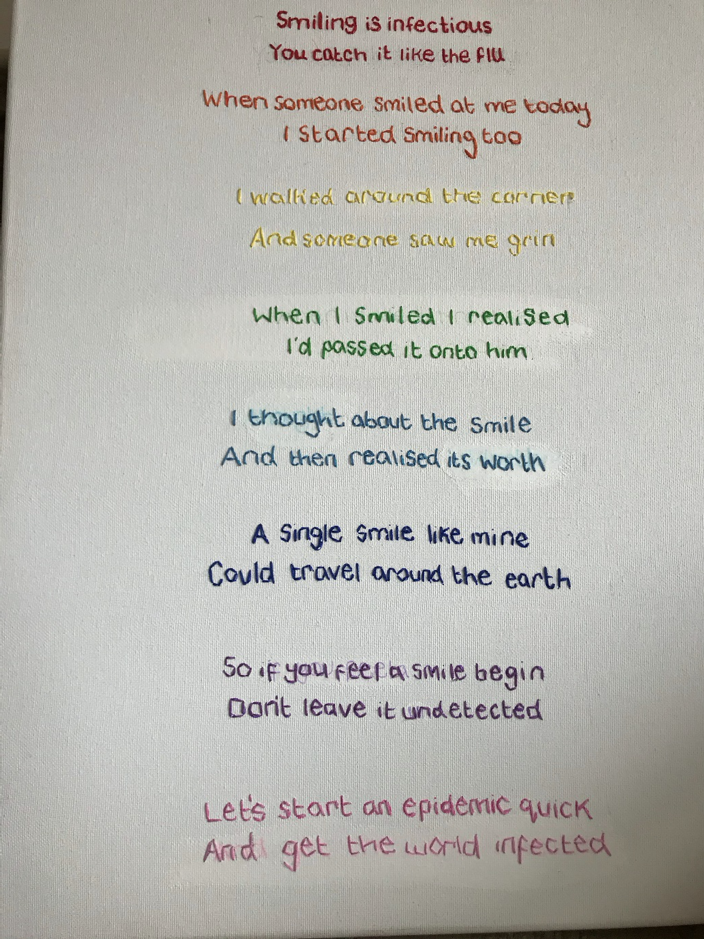 Smiling is infectious
You catch it like the flu
When someone smiled at me today
I started smiling too
I walked around the corner
And someone saw me grin
When I smiled I realised
I'd passed it onto him
I thought about the smile
And then realised its worth
A single smile like mine
Could travel around the earth
So if you feel a smile begin
Don't leave it undetected
Let's start an epidemic quick
And get the world infected